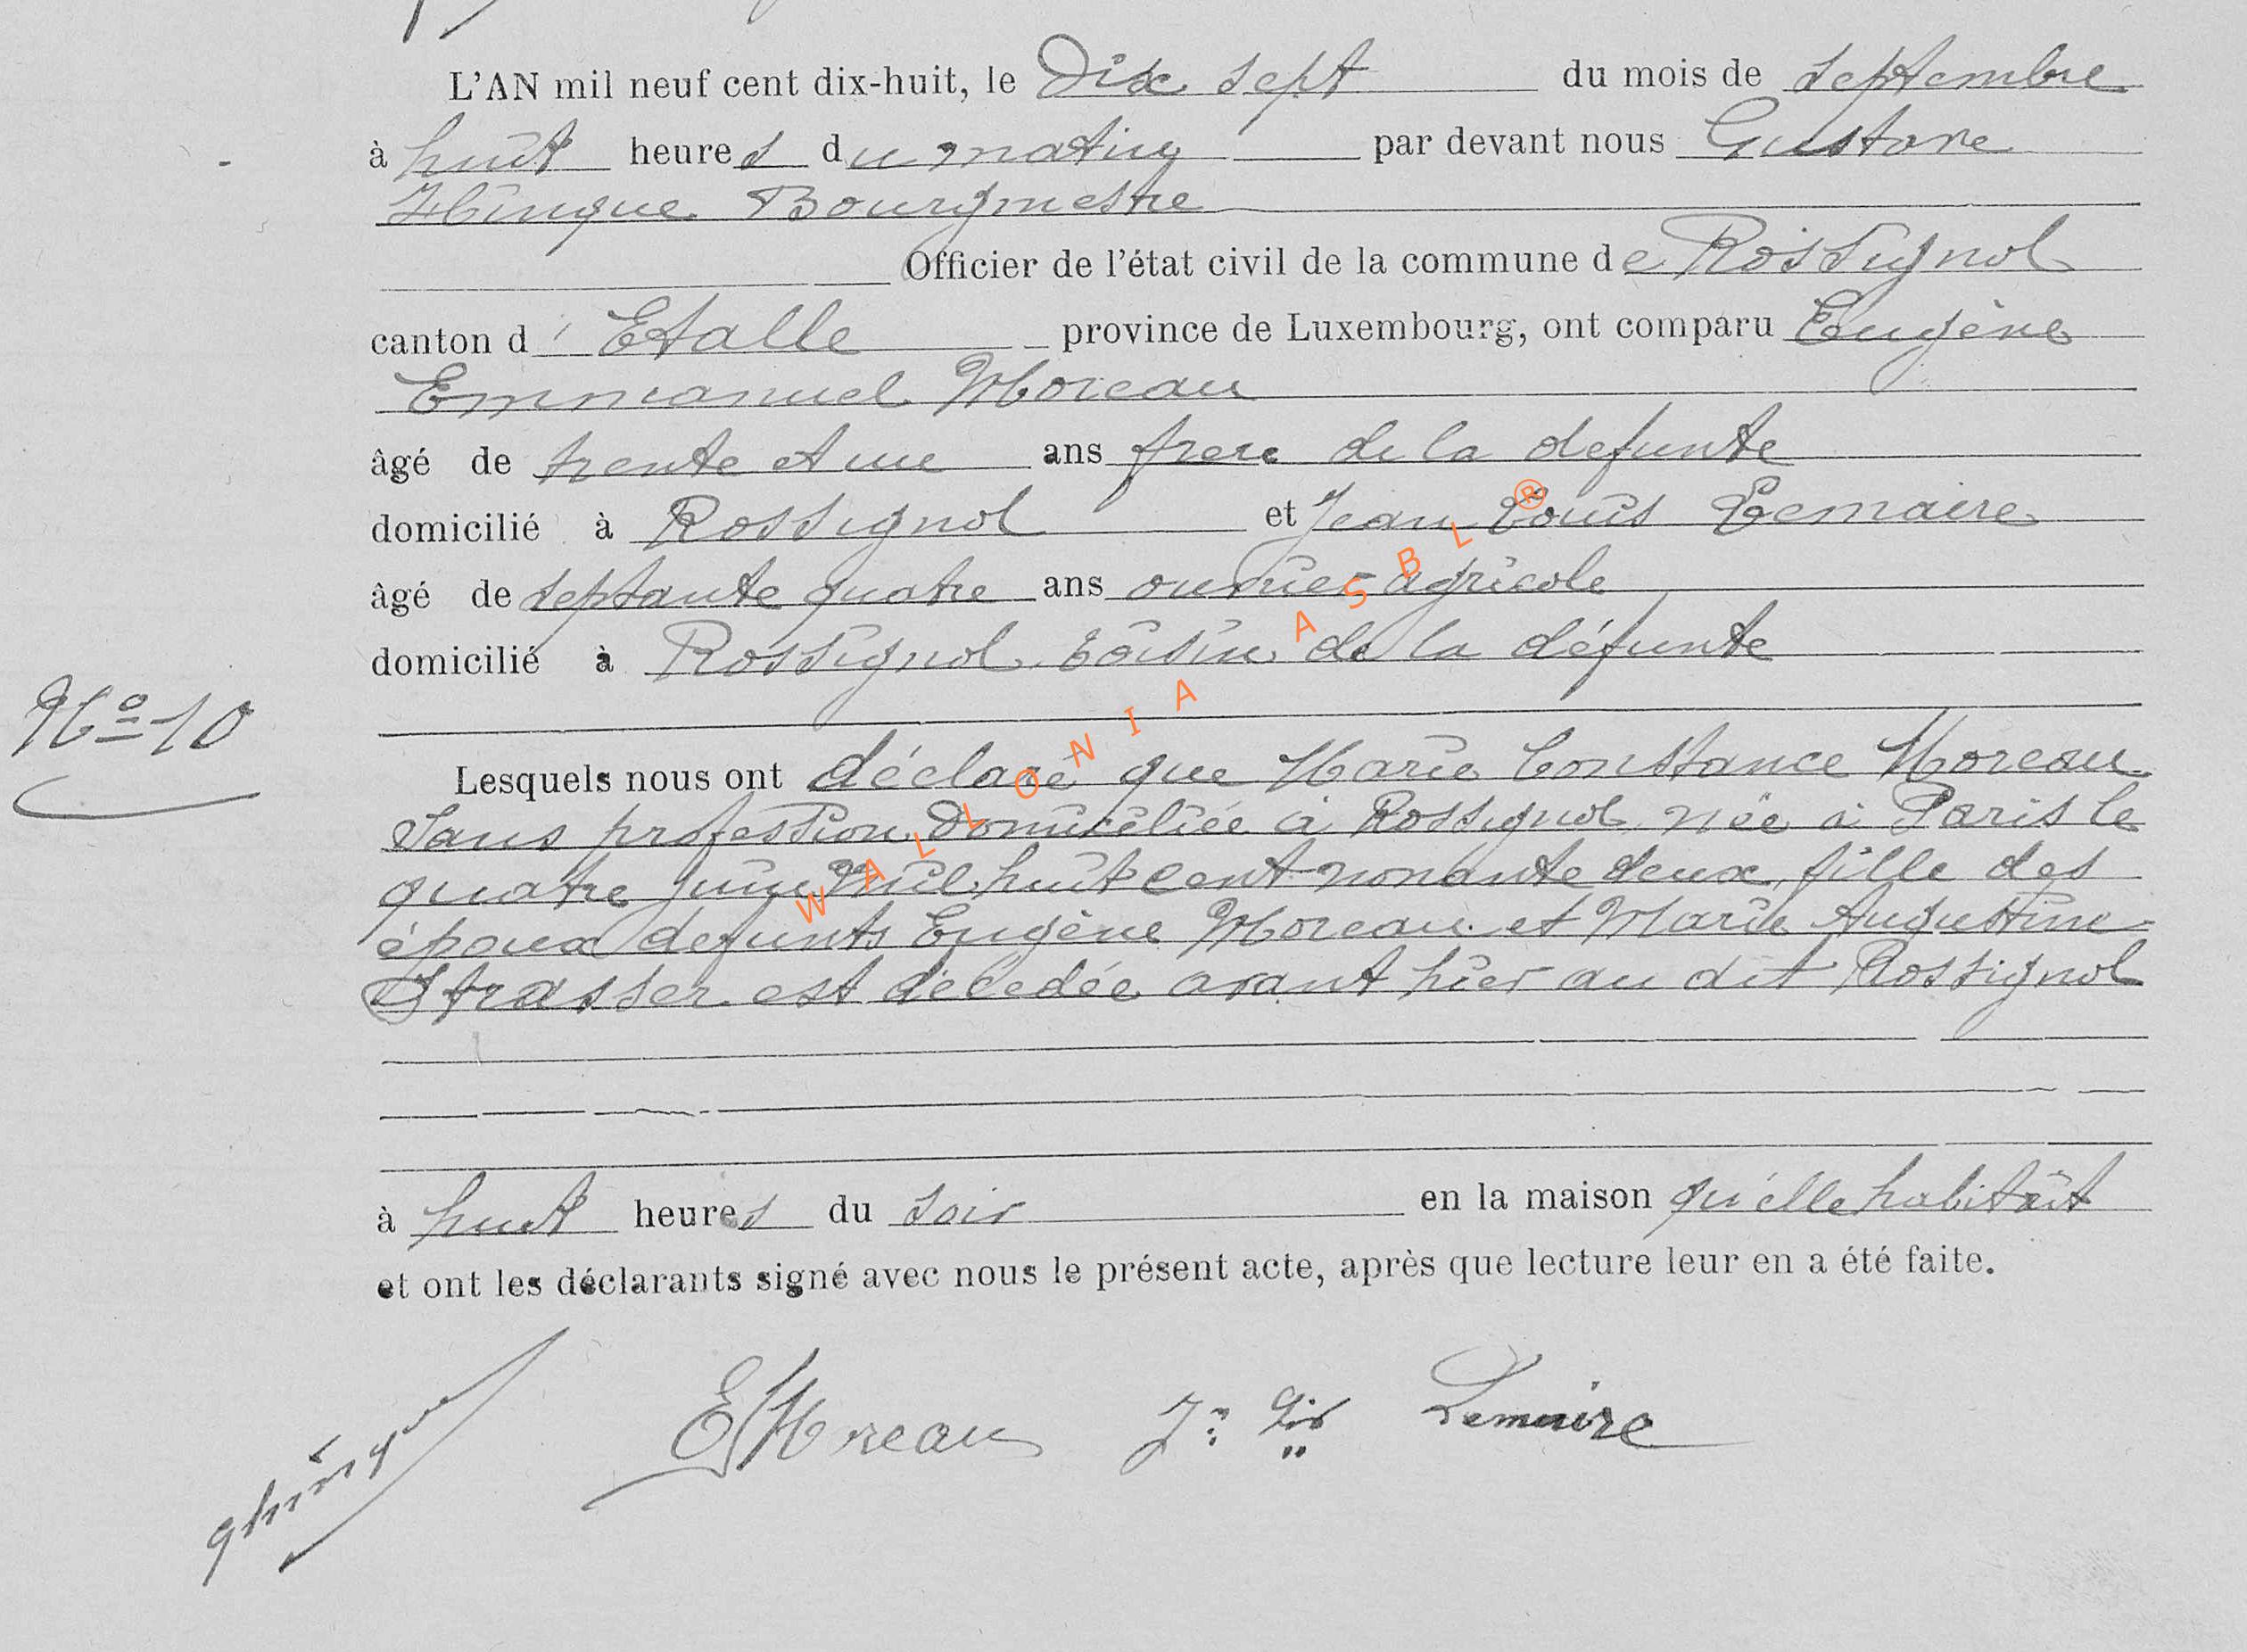 L'AN mil neuf cent dix-huit, le Dix sept du mois de septembre
à huit heures du matin par devant nous Gustave
Hinque Bourgmestre
Officier de l'état civil de la commune de Rossignol
canton d' Etalle province de Luxembourg, ont comparu Eugène
Emmanuel Moreau
âgé de trente et un ans frere de la defunte
domicilié à Rossignol et Jean Louis Lemaire
âgé de septante quatre ans ouvrier agricole
domicilié à Rossignol voisin de la défunte
No 10
Lesquels nous ont déclaré que Marie Constance Moreau
Sans profession Domiciliée à Rossignol, née à Paris le
quatre juin Mil huit cent nonante deux, fille des
époux defunts Eugène Moreau et Marie Augustine
Strasser est décédée avant hier au dit Rossignol
à huit heures du soir en la maison qu'elle habitait
et ont les déclarants signé avec nous le présent acte, après que lecture leur en a été faite.
ghinque EMoreau Jn Lis Lemaire
WALLONIA ASBL ®